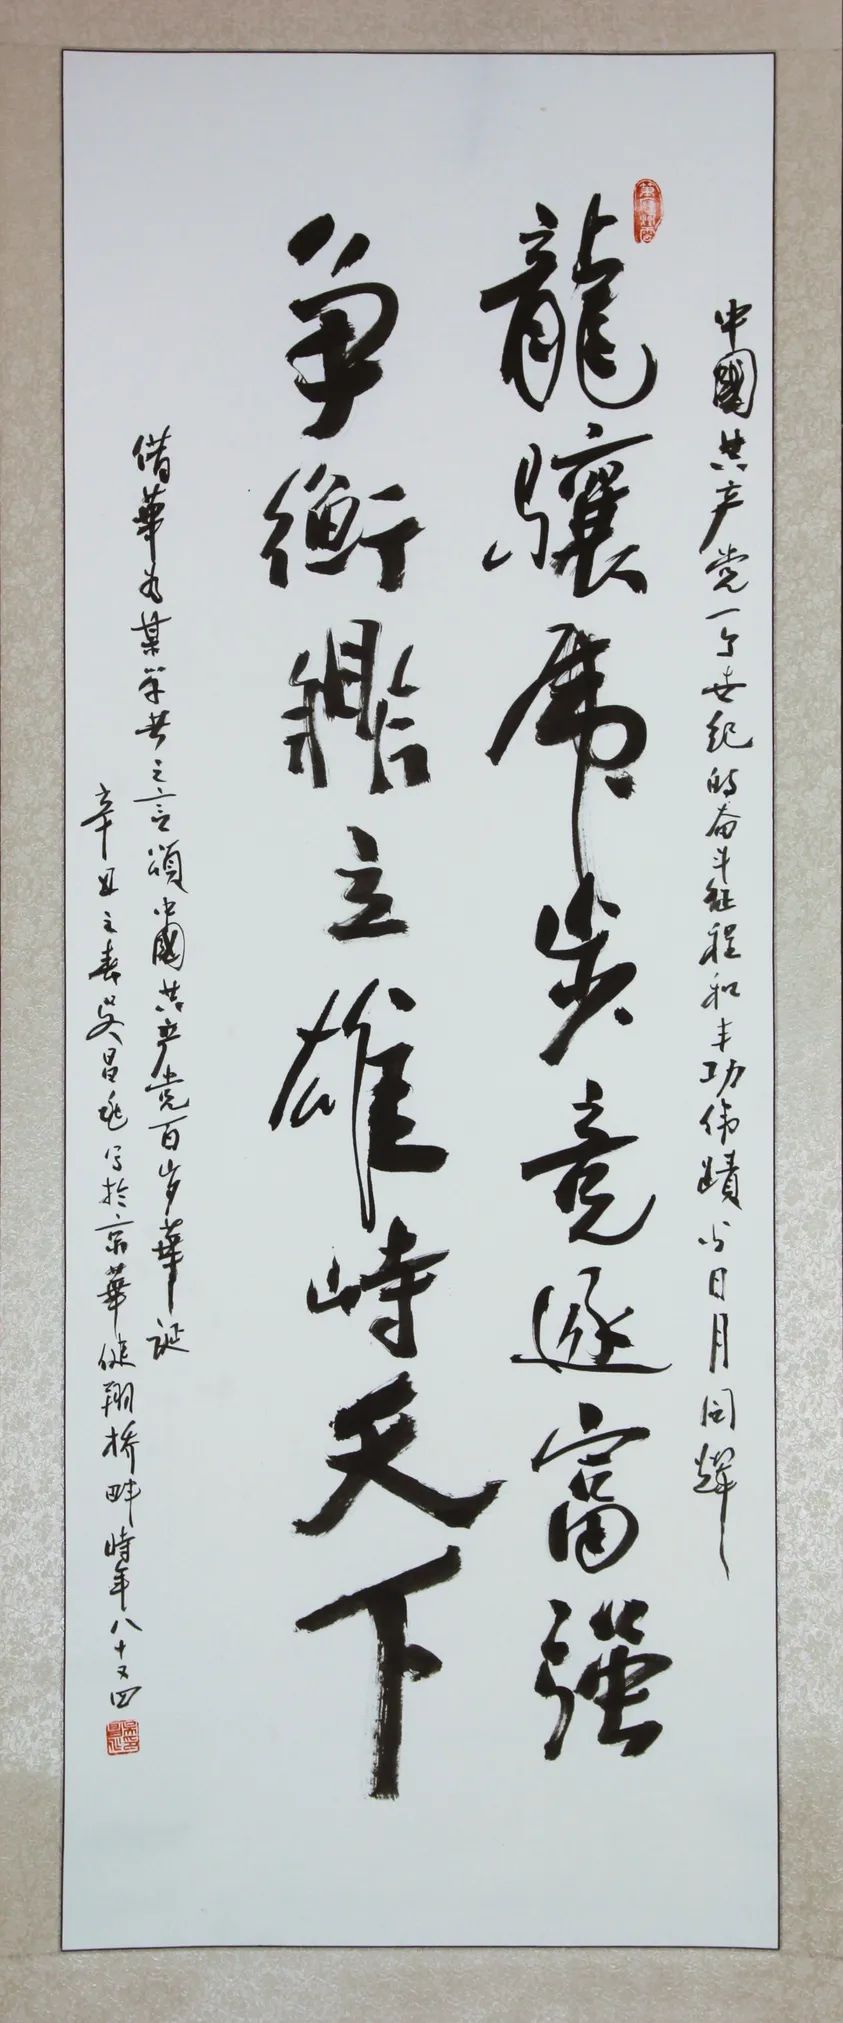 中國共产党一个世纪的奋斗征程和丰功伟蹟与日月同辉
龍驤虎步竞逐富强
争衡鼎立雄峙天下
借華为某某某之言頌中國共产党百岁華诞
辛丑之春吴昌兆写於京華健翔桥畔時年八十又四